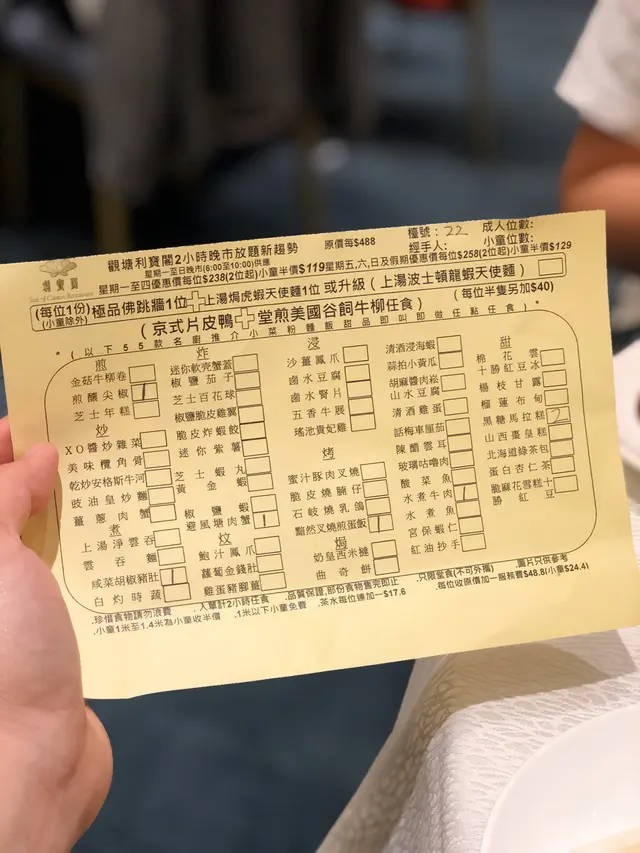 利寶閣
Star of Canton Restaurant
觀塘利寶閣2小時晚市放題新趨勢
原價每$488
檯號：22
成人位數：
經手人：
小童位數：
星期一至日晚市(6:00至10:00)供應
星期一至四優惠價每位$238(2位起)小童半價$119
星期五,六,日及假期優惠價每位$258(2位起)小童半價$129
(每位1份)
(小童除外)
極品佛跳牆1位＋上湯焗虎蝦天使麵1位 或升級（上湯波士頓龍蝦天使麵）
（京式片皮鴨＋堂煎美國谷飼牛柳任食）
(每位半隻另加$40)
*（以下55款名廚推介小菜粉麵飯甜品即叫即做任點任食）*
煎
金菇牛柳卷
煎釀尖椒 1
芝士年糕
炒
XO醬炒雜菜
美味欖角骨
乾炒安格斯牛河
豉油皇炒麵
薑蔥肉蟹
煮
上湯淨雲吞
雲吞麵
咸菜胡椒豬肚 1
白灼時蔬
炸
迷你軟壳蟹蓋
椒鹽茄子
芝士百花球
椒鹽脆皮雞翼
脆皮炸蝦餃
迷你紫薯
芝士蝦丸
黃金蝦
椒鹽蝦
避風塘肉蟹 1
炆
鮑汁鳳爪
蘿蔔金錢肚
雞蛋豬腳薑
浸
沙薑鳳爪
鹵水豆腐
鹵水腎片
五香牛展
瑤池貴妃雞
烤
蜜汁豚肉叉燒
脆皮燒腩仔
石岐燒乳鴿
黯然叉燒煎蛋飯 1
焗
奶皇西米撻
曲奇餅
清酒浸海蝦
蒜拍小黃瓜
胡麻醬肉崧
山水豆腐
清酒雞蛋
話梅車厘茄
陳醋雲耳
玻璃咕嚕肉
酸菜魚
水煮牛肉 1
水煮魚
宮保蝦仁
紅油抄手
甜
棉花雲
十勝紅豆冰
楊枝甘露
榴蓮布甸
黑糖馬拉糕 2
山西棗皇糕
北海道綠茶包
蛋白杏仁茶
脆麻花雪糕十勝紅豆
.珍惜食物請勿浪費
.入單計2小時任食
.品質保證,部份食物售完即止
.只限堂食(不可外攜)
.圖片只供參考
.小童1米至1.4米為小童收半價
.1米以下小童免費
.茶水每位連加一$17.6
.每位收原價加一服務費$48.8(小童$24.4)